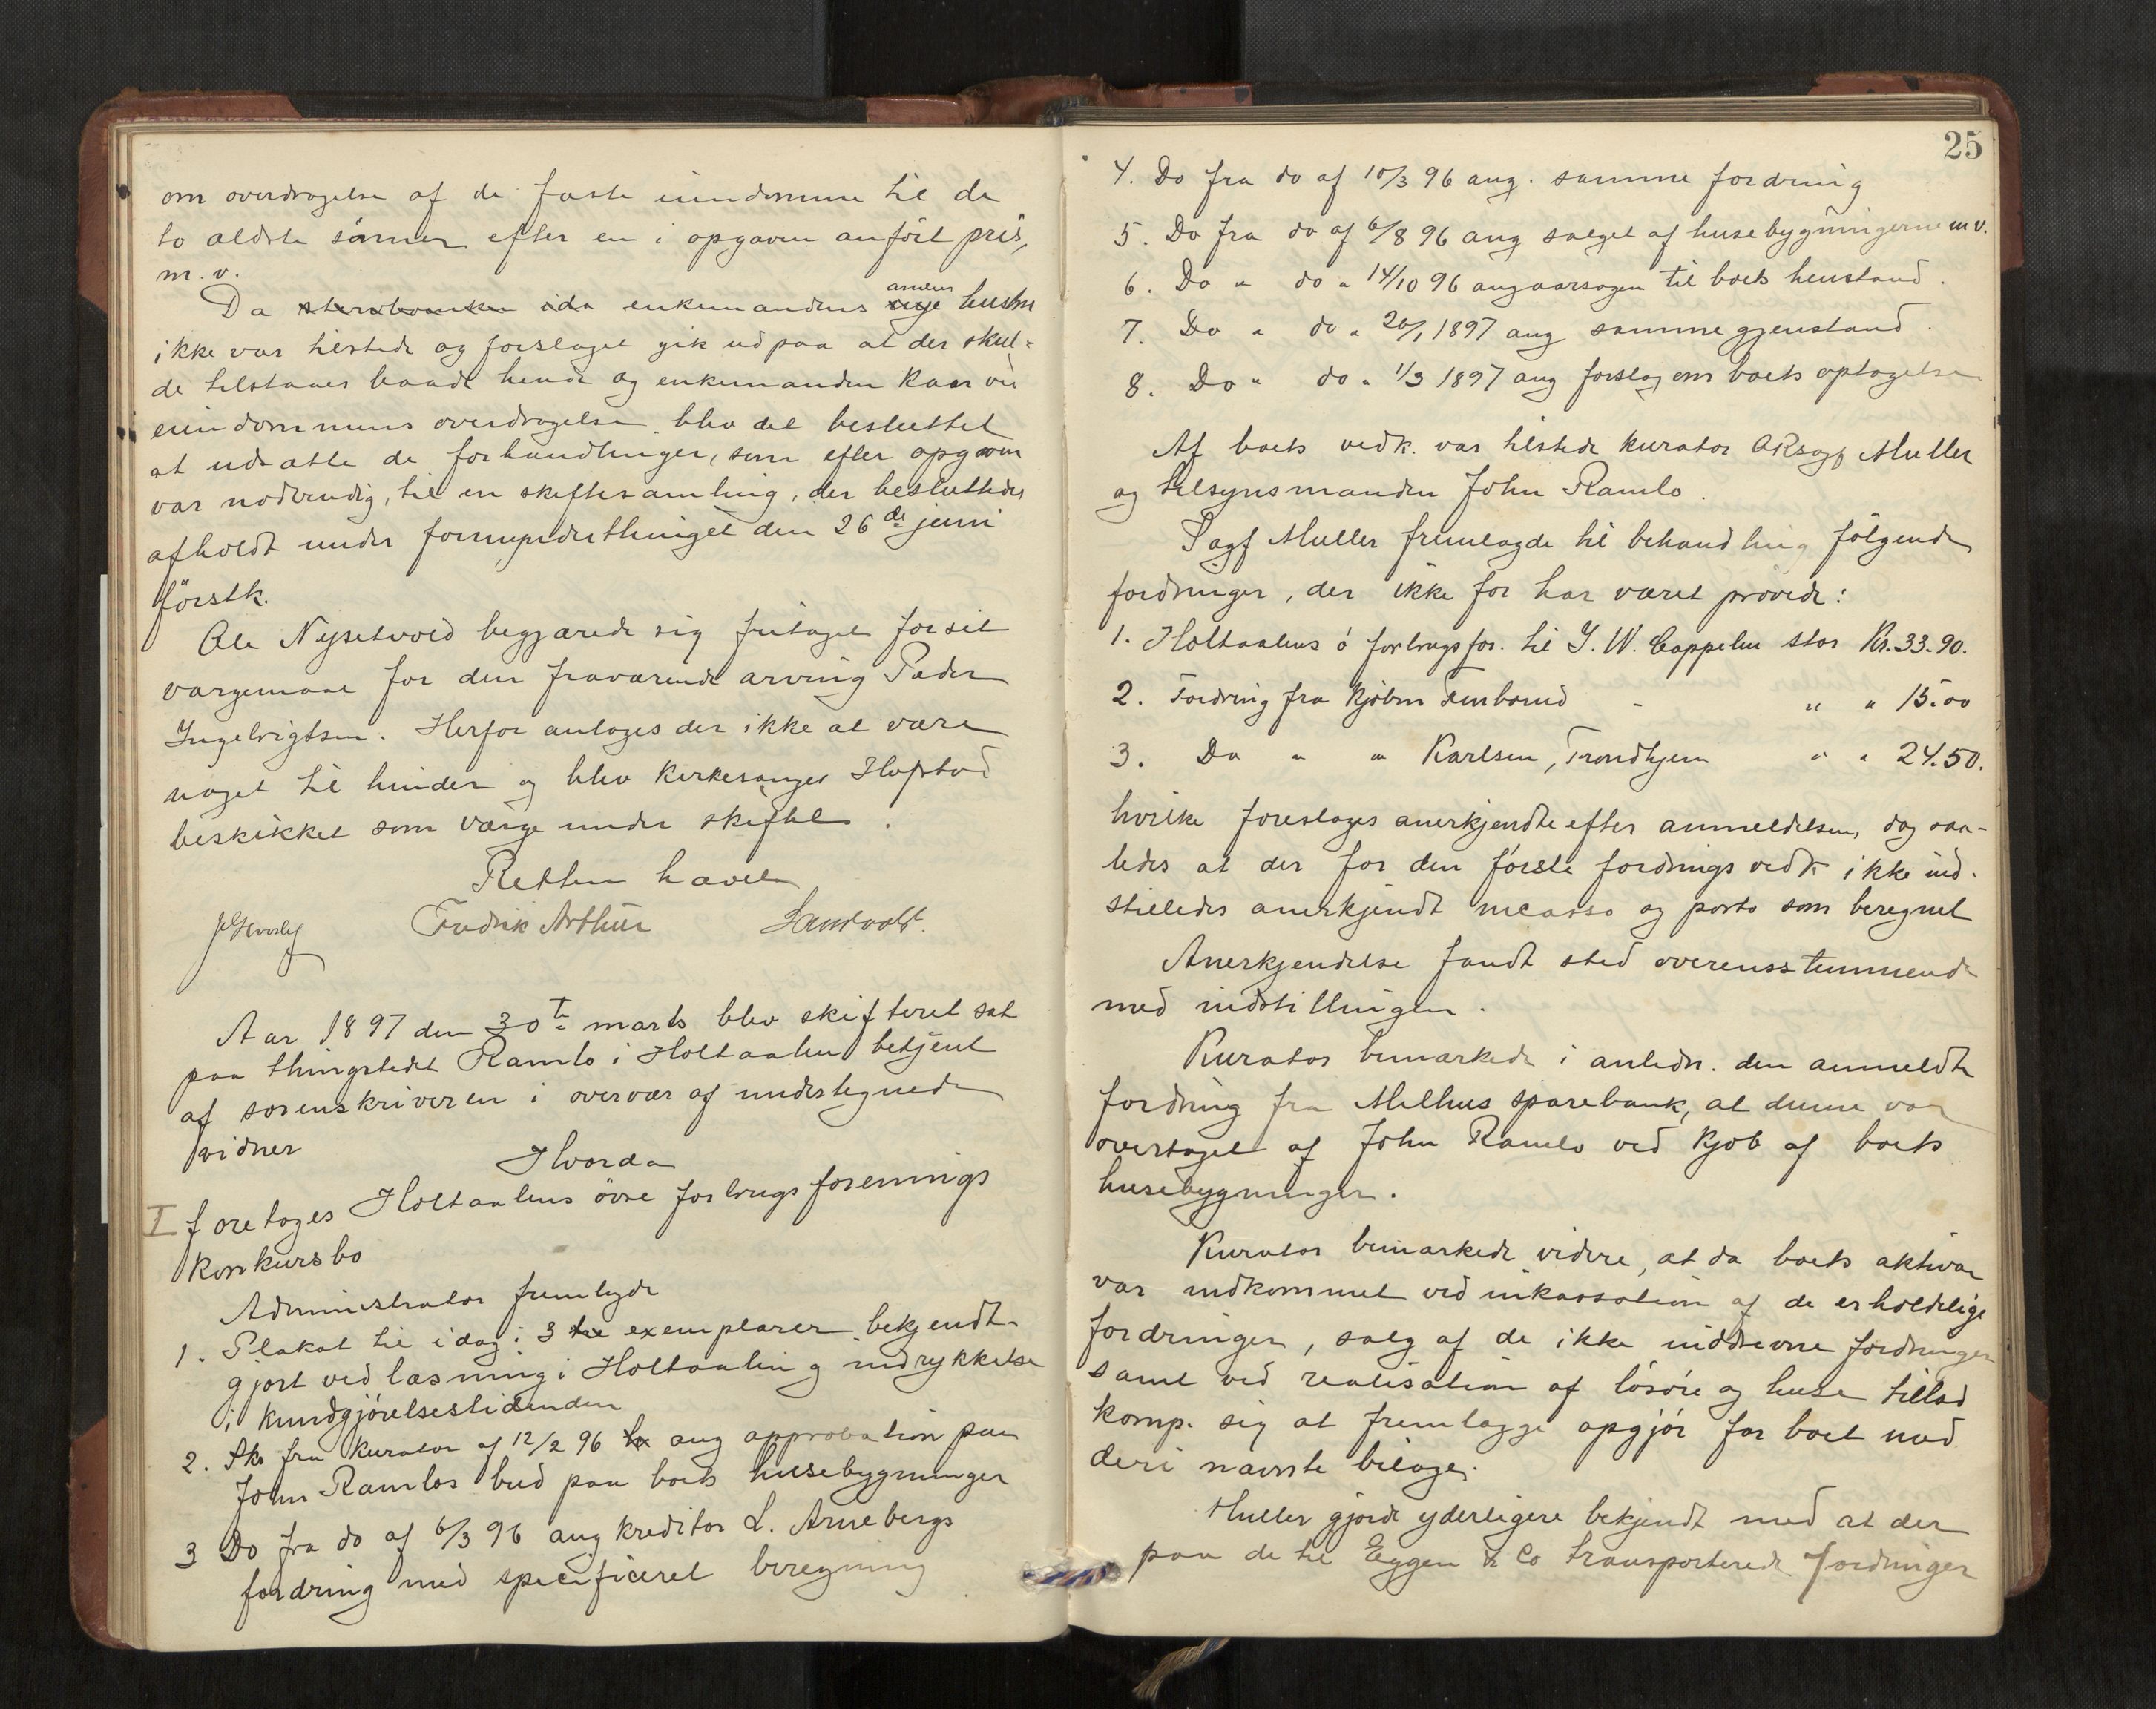 om overdragelse af de faste eiendomme til de
to ældste sönner efter en i opgaven anfört pris,
m.v.
Da enkemandens anden hustru
ikke var tilstede og forslaget gik ud paa at der skul=
de tilstaaes baade hende og enkemanden kaar ved
eiendommens overdragelse blev det besluttet
at udsætte de forhandlinger, som efter opgaven
var nödvendig, til en skiftesamling, der besluttedes
afholdt under formynderthinget den 26de juni
förstk.
Ole Nysetvold begjærede sig fritaget for sit
værgemaal for den fraværende arving Peder
Ingebrigtsen. Herfor antoges der ikke at være
noget til hinder og blev kirkesanger Hofstad
beskikket som værge under skiftet.
Retten hævet
Fredrik Arthur Sandvold.
Aar 1897 den 30te marts blev skifteret sat
paa thingstedet Ramlo i Holtaalen betjent
af sorenskriveren i overvær af undertegnede
vidner
Hvorda
I foretoges Holtaalens övre forbrugsforenings
konkursbo
Administrator fremlagde
1. Plakat til idag i 3 exemplarer bekjendt-
gjort ved læsning i Holtaalen og indrykkelse
i kundgjörelsestidenden
2. Sk. fra kurator af 12/2 96 ang approbation paa
John Ramlos bud paa boets husebygninger
3 Do fra do af 6/3 96 ang kreditor L. Arnebergs
fordring med specificeret beregning
25
4. Do fra do af 10/3 96 ang. samme fordring
5. Do fra do af 6/8 96 ang salget af husebygningerne m v.
6. Do " do " 14/10 96 ang aarsagen til boets henstand.
7. Do " do " 20/1 1897 ang samme gjenstand.
8. Do " do " 1/3 1897 ang forslag om boets optagelse
Af boets vedk. var tilstede kurator ORsagf Muller
og tilsynsmanden John Ramlo.
Sagf Muller fremlagde til behandling fölgende
fordringer, der ikke för har været prövede:
1. Holtaalens ö forbrugsfor. til J. W. Cappelen stor Kr. 33.90.
2. Fordring fra Kjöbm - " " 15.00
3. Do " " Karlsen, Trondhjem " " 24.50.
hvilke foreslages anerkjendte efter anmeldelsen, dog saa-
ledes at der for den förste fordrings vedk ikke ind-
stilledes anerkjendt incasso og porto som beregnet
Anerkjendelse fandt sted overensstemmende
med indstillingen.
Kurator bemærkede i anledn. den anmeldte
fordring fra Melhus sparebank, at denne var
overtaget af John Ramlo ved kjöb af boets
husebygninger.
Kurator bemærkede videre, at da boets aktiva
var indkommet ved inkassation af de erholdelige
fordringer, salg af de ikke inddrevne fordringer
samt ved realisation af lösöre og huse tillod
komp. sig at fremlægge opgjör for boet med
deri nævnte bilage.
Muller gjorde yderligere bekjendt med at der
paa de til Eggen & Co transporterede fordringer